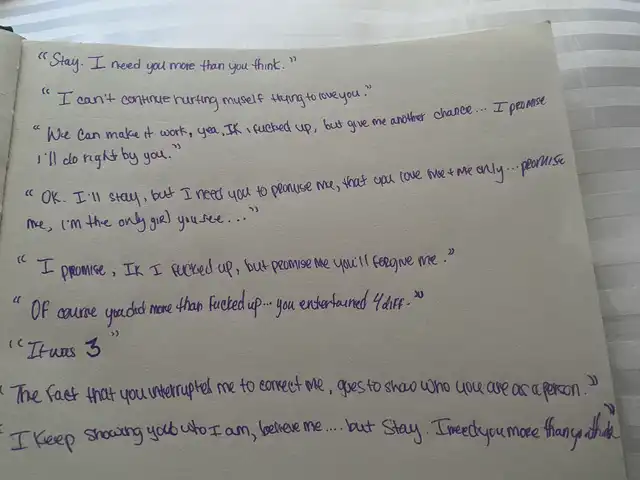 "Stay. I need you more than you think."
"I can't continue hurting myself trying to love you."
"We can make it work, yea, IK i fucked up, but give me another chance... I promise
I'll do right by you."
"OK. I'll stay, but I need you to promise me, that you love me + me only... promise
me, I'm the only girl you see..."
"I promise, IK I fucked up, but promise me you'll forgive me."
"OF course you did more than fucked up... you entertained 4 diff."
"It was 3"
"The fact that you interrupted me to correct me, goes to show who you are as a person."
"I keep showing you who I am, believe me.... but Stay. I need you more than you think"